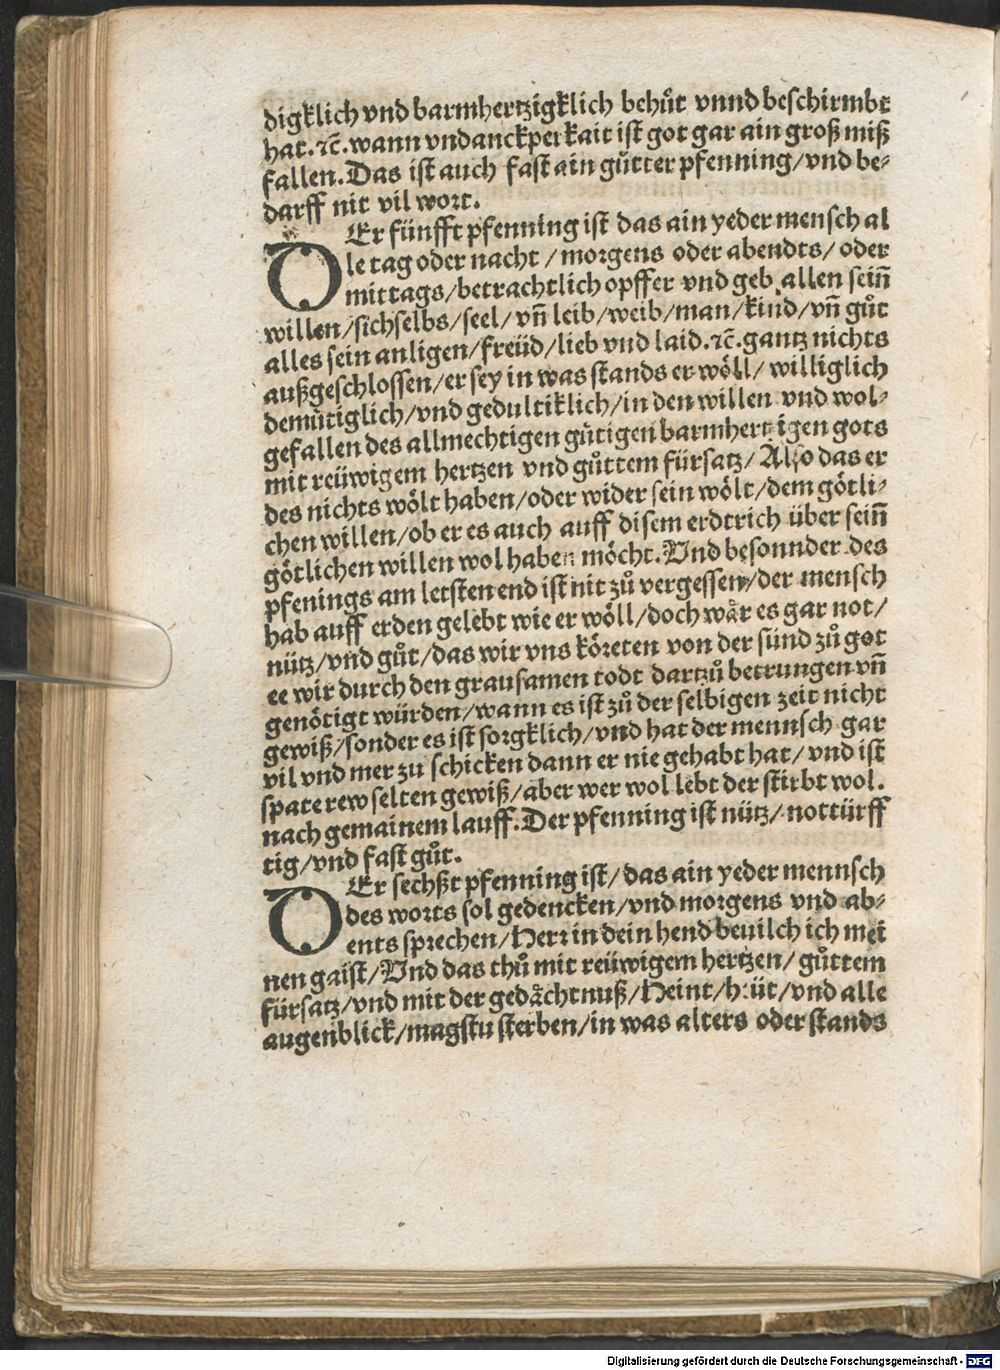 digklich vnd barmhertzigklich behůt vnnd beschirmbt
hat. ꝛc̄. wann vndanckperkait ist got gar ain groß miß
fallen. Das ist auch fast ain gůtter pfenning/ vnd be⸗
darff nit vil wort.
DEr fünfft pfenning ist das ain yeder mensch al
le tag oder nacht / morgens oder abendts/ oder
mittags/ betrachtlich opffer vnd geb allen sein̄
willen/ sichselbs/ seel/ vn̄ leib/ weib/ man/ kind/ vn̄ gůt
alles sein anligen/ freüd/ lieb vnd laid. ꝛc̄. gantz nichts
außgeschlossen/ er sey in was stands er wöll/ williglich
demůtiglich/ vnd gedultiklich/ in den willen vnd wol⸗
gefallen des allmechtigen gůtigen barmhertzigen gots
mit reüwigem hertzen vnd gůttem fürsatz/ Also das er
des nichts wölt haben/ oder wider sein wölt/ dem götli⸗
chen willen/ ob er es auch auff disem erdtrich über sein̄
götlichen willen wol haben möcht. Vnd besonnder des
pfenings am letsten end ist nit zů vergessen/ der mensch
hab auff erden gelebt wie er wöll/ doch wår es gar not/
nütz/ vnd gůt/ das wir vns köreten von der sünd zů got
ee wir durch den grausamen todt dartzů betrungen vn̄
genötigt würden/ wann es ist zů der selbigen zeit nicht
gewiß/ sonder es ist sorgklich/ vnd hat der mennsch gar
vil vnd mer zu schicken dann er nie gehabt hat/ vnd ist
spate rew selten gewiß/ aber wer wol lebt der stirbt wol.
nach gemainem lauff. Der pfenning ist nütz/ nottürff
tig/ vnd fast gůt.
DEr sechßt pfenning ist/ das ain yeder mennsch
des worts sol gedencken/ vnd morgens vnd ab⸗
ents sprechen/ Herr in dein hend beuilch ich mei
nen gaist/ Vnd das thů mit reüwigem hertzen/ gůttem
fürsatz/ vnd mit der gedåchtnuß/ Heint/ heüt/ vnd alle
augenblick/ magstu sterben/ in was alters oder stands
Digitalisierung gefördert durch die Deutsche Forschungsgemeinschaft - DFG